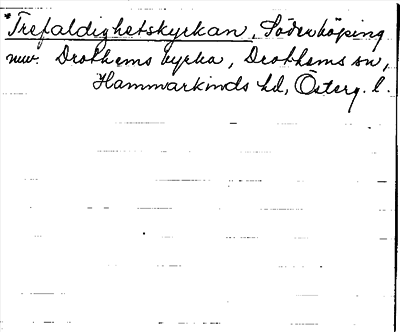 *Trefaldighetskyrkan, Söderköping
nuv. Drothems kyrka, Drothems sn,
Hammarkinds hd, Österg. l.